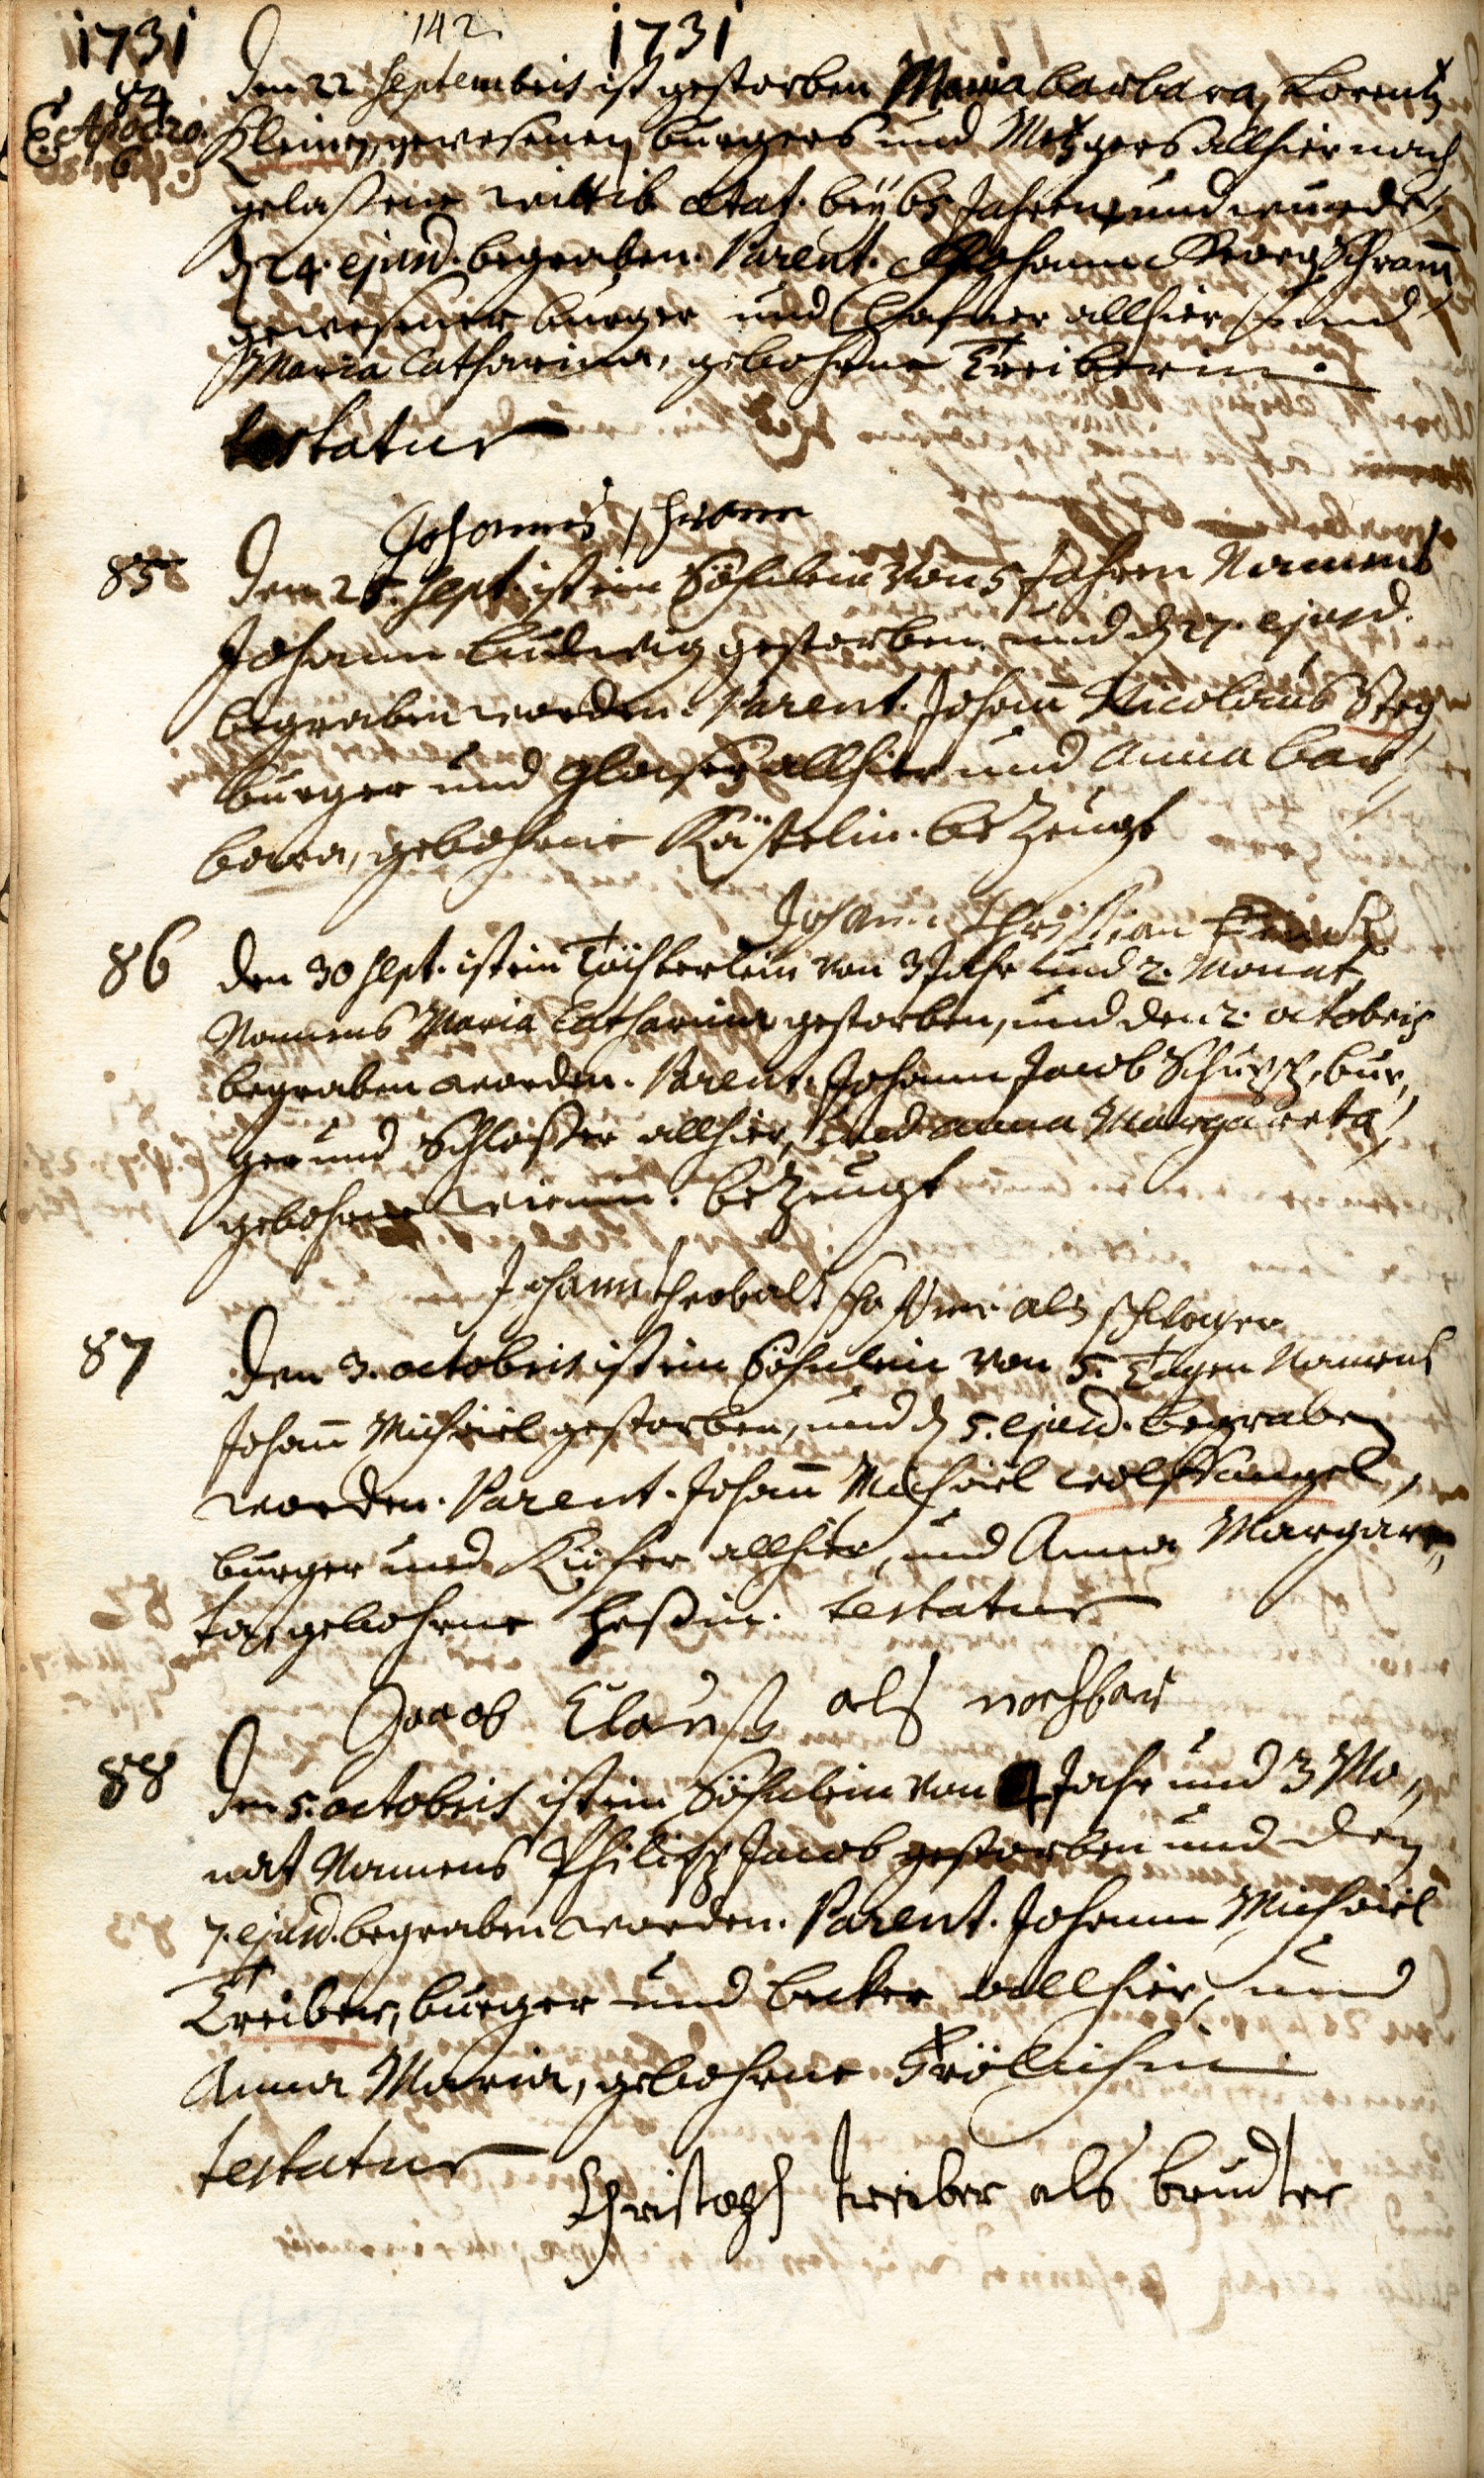 1731 142 1731
84
Ex Apoc. 20.
6
Den 22 Septembris ist gestorben Maria Barbara, Lorentz
Kleinen, gewesenen burgers und Metzgers allhier nach
gelaßene wittib ætat. beÿ 65 Jahren und wurde
d. 24. ejusd. begraben. Parent. Johann Georg Schramm
gewesener burger und Hafner allhier und
Maria Catharina, gebohrne Treiberin.
testatur
Johannes
85 Den 25. Sept. ist ein Söhnlein von 5 Jahren Namens
Johann Ludwig gestorben und d. 27. ejusd.
begraben worden. Parent. Johann Nicolaus Steg
burger und glaser allhier und Anna Bar,,
bara, gebohrne Kästelin. bezeugt
Johann Christian
86 Den 30 Sept. ist ein Töchterlein von 3 Jahr und 2. Monat,
Namens Maria Catharina gestorben, und den 2. octobris
begraben worden. Parent. Johann Jacob Schupp, bur,,
ger und Schloßer allhier, und Anna Margareta,
gebohrne bezeugt
Johann Theobalt als
87 Den 3. octobris ist ein Söhnlein von 5. Tagen Namens
Johann Michael gestorben, und d. 5. ejusd. begraben
worden. Parent. Johann Michael Wolffsangel,
burger und Kiefer allhier, und Anna Margare,,
ta, gebohrne Heßin. testatur
Jacob Clauß als nachbar
88 Den 5. octobris ist ein Söhnlein von 4 Jahr und 3 Mo,,
nat Namens Philipp Jacob gestorben und den
7. ejusd. begraben worden. Parent. Johann Michael
Treiber, burger und becker allhier, und
Anna Maria, gebohrne Frölichin.
testatur Christoph Treiber als brudter